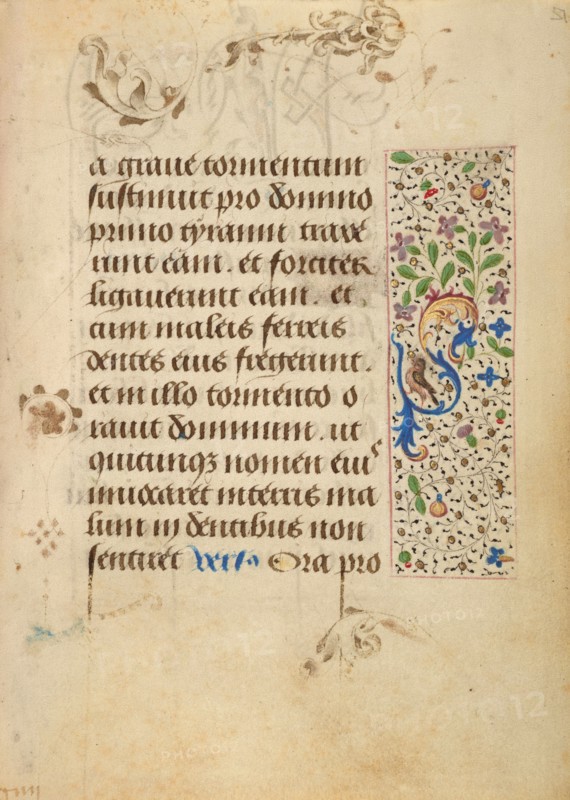 a graue tormentum
sustinuit pro domino
primo tyranni traxe
runt eam. et forciter
ligauerunt eam. et
cum maleis ferreis
dentes eius fregerunt.
et in illo tormento o
rauit dominum. ut
quicunqꝫ nomen eius
inuocaret in terris ma
lum in dentibus non
sentiret Vers Ora pro
PHOTO12
PHOTO12